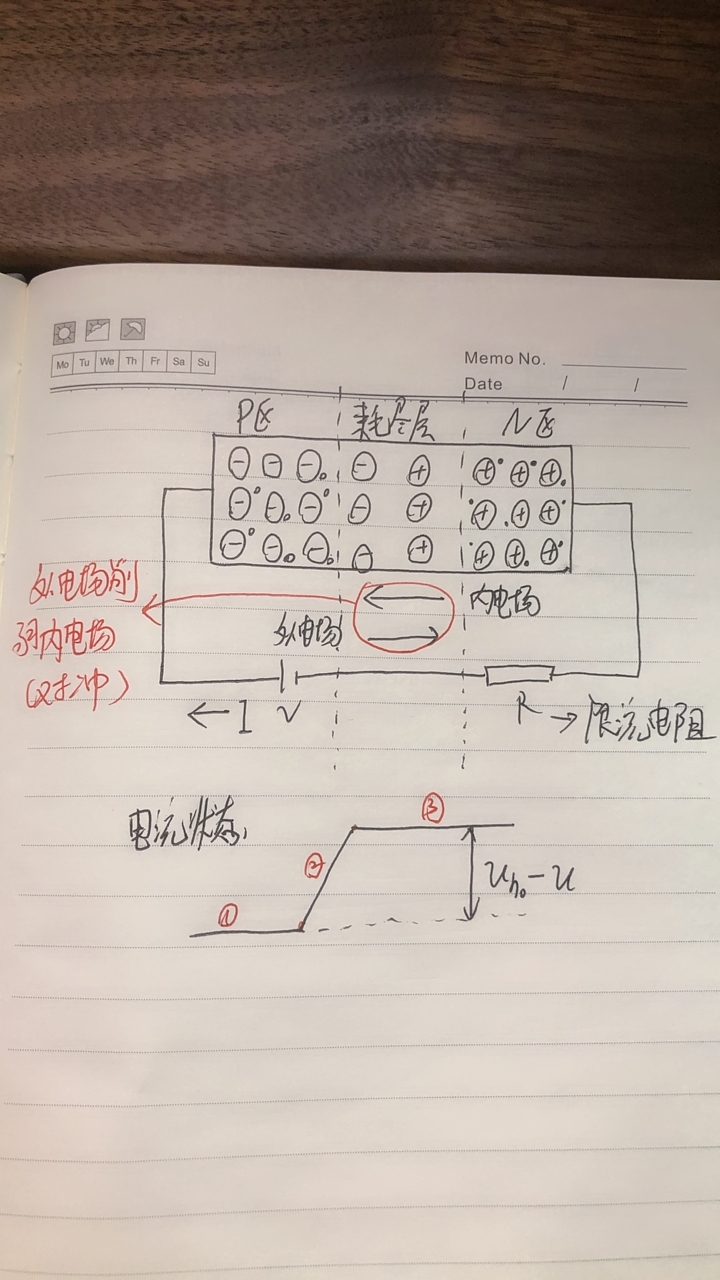 Mo Tu We Th Fr Sa Su
Memo No.
Date / /
P区 耗尽层 N区
外电场削
弱内电场
(对冲)
内电场
外电场
← I V
R → 限流电阻
电流状态
①
②
③
Uho - U